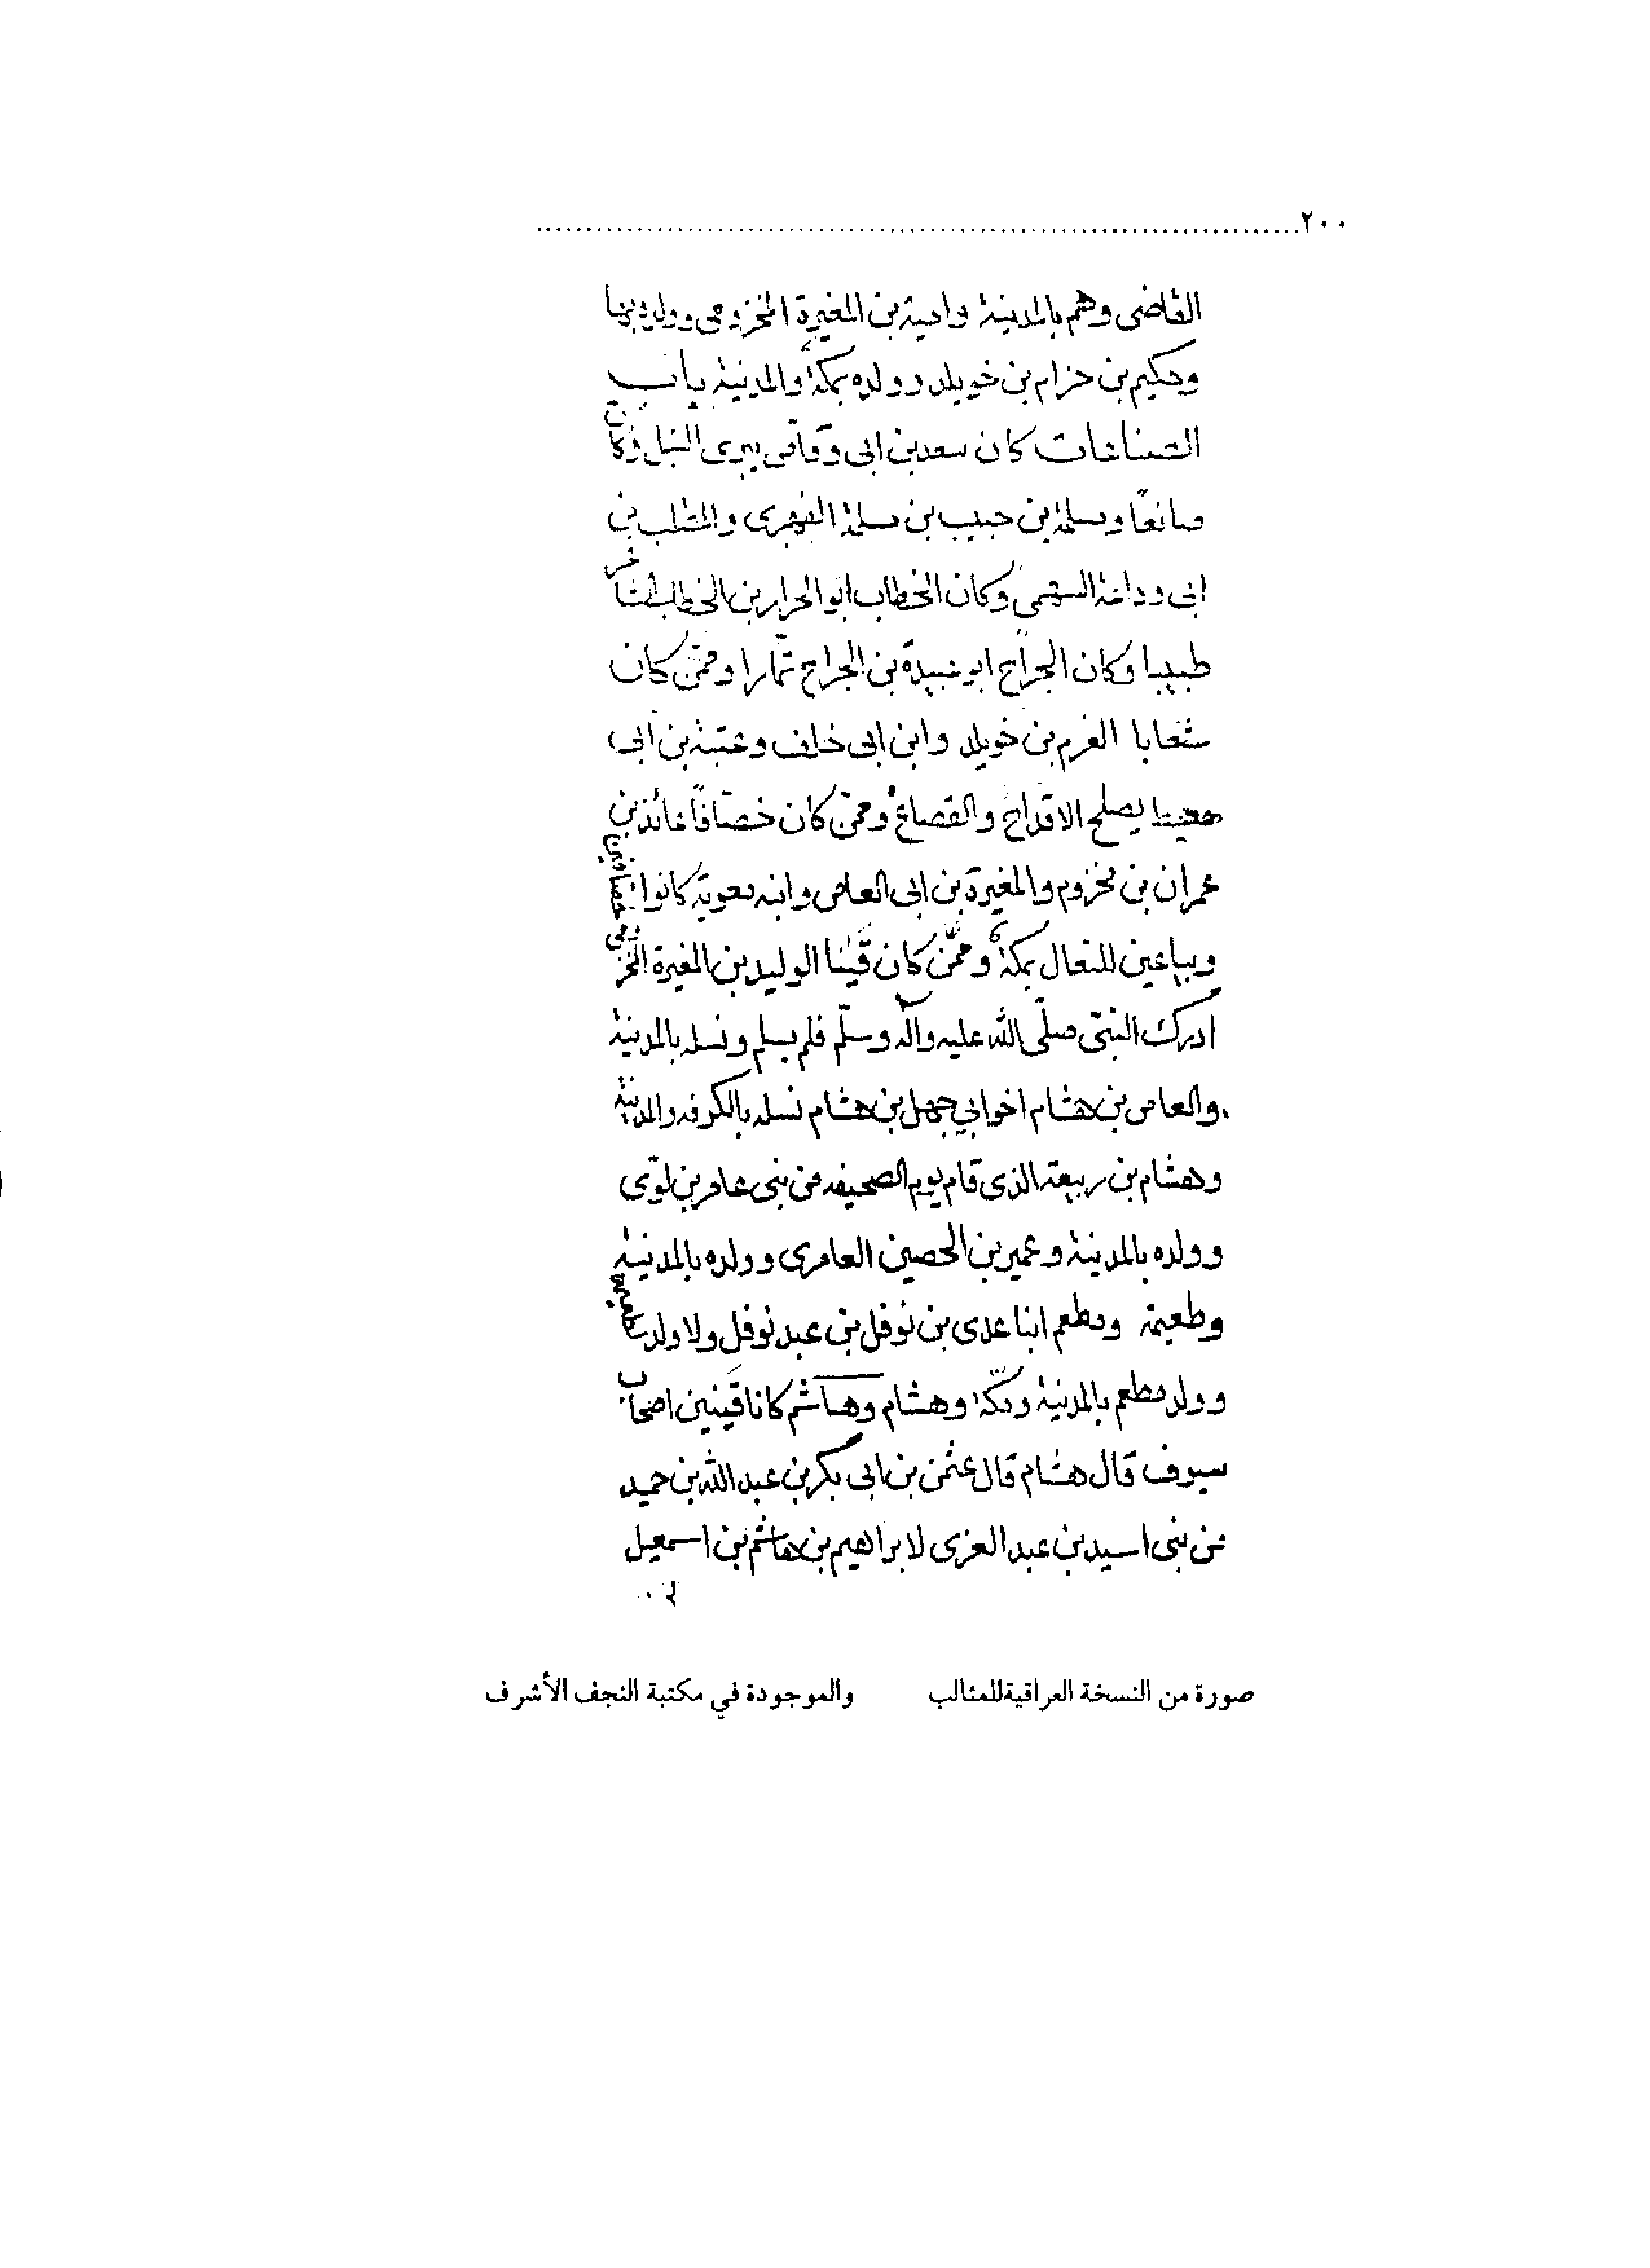 ٢٠٠
القاضى وهم بالمدينة وامية بن المغيرة المخزومى وولده بها
وحكيم بن حزام بن خويلد وولده بمكة والمدينة باب
الصناعات كان سعد بن ابى وقاص يبرى النبل وكان
صانعا ومسلمة بن حبيب بن مسلمة الفهرى والمطلب بن
ابى وداعة السهمى وكان الخطاب ابو الحرار بن الخطاب
طبيبا وكان الجراح ابو عبيدة بن الجراح تمارا وممن كان
بن خويلد وابن ابى خلف وعتبة بن ابى
معيط يصلح الاقداح والقصاع وممن كان خصافا عائذ بن
عمران بن مخزوم والمغيرة بن ابى العاص وابنه معوية كانوا خصافين
وبياعين للنعال بمكة وممن كان قينا الوليد بن المغيرة المخزومى
ادرك النبى صلى الله عليه وآله وسلم فلم يسلم ونسله بالمدينة
والعاص بن هشام اخو ابي جهل بن هشام نسله بالكوفه والمدينة
وهشام بن ربيعة الذى قام يوم الصحيفه من بنى عامر بن لوى
وولده بالمدينة وعمير بن الحصين العامرى وولده بالمدينة
وطعيمة ومطعم ابنا عدى بن نوفل بن عبد نوفل ولا ولد لطعيمة
وولد مطعم بالمدينة ومكة وهشام وهاشم كانا قينين اصحاب
سيوف قال هشام قال عثمن بن ابى بكر بن عبد الله بن حميد
من بنى اسيد بن عبد العزى لابراهيم بن هاشم بن اسمعيل
صورة من النسخة العراقية للمثالب والموجودة في مكتبة النجف الأشرف